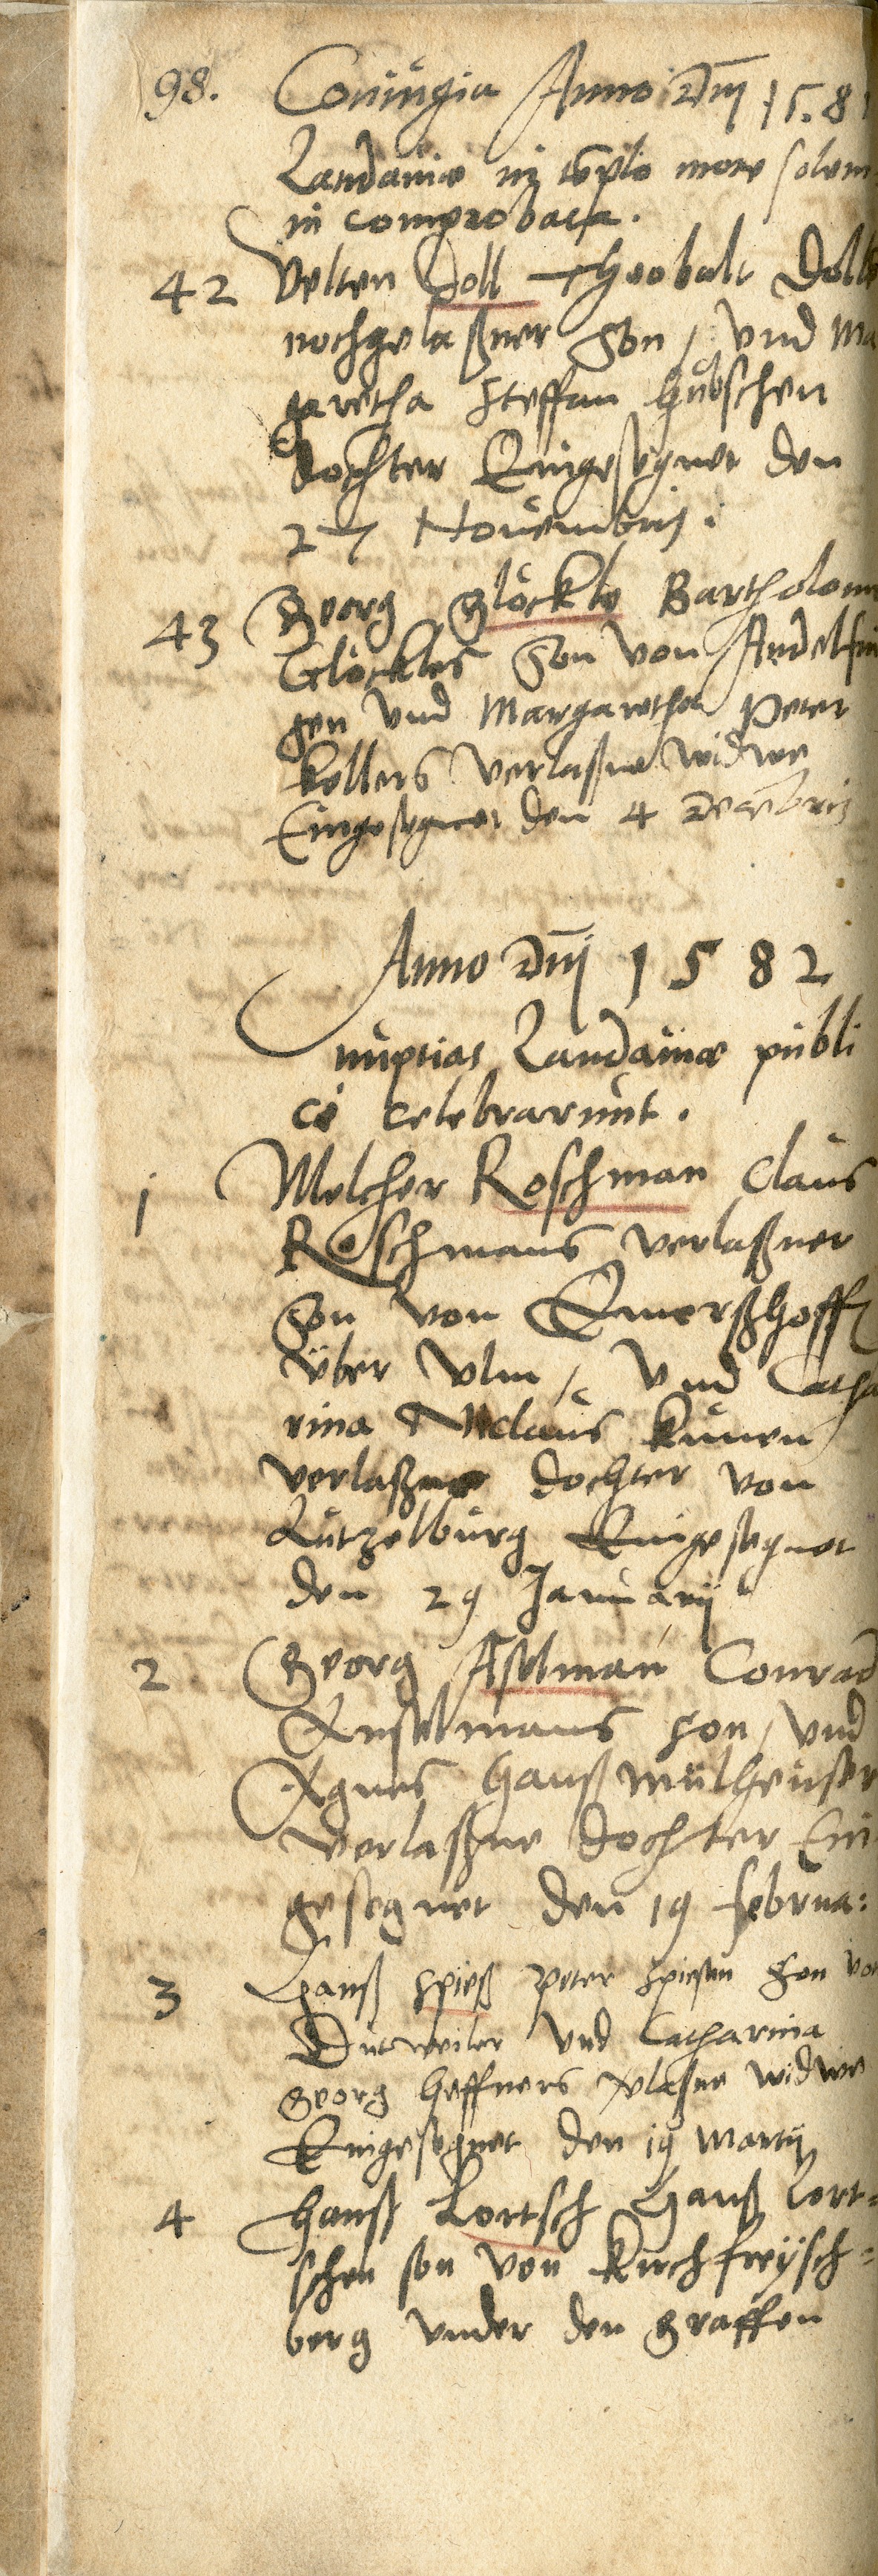 98. Coniugia Anno Dni 1581
Landaviae in teplo more solem
in comprobata.
42 Velten Doll Theobalt Dolle
nochgelaßner Son, vnd Ma
garetha Steffan Hübschen
dochter Eingesegnet den
27 Nouembris.
43 Georg Glöckle Bartholome
Glöckles Son von Andelfin
gen vnd Margaretha Peter
Kellers verlaßne widwe
Eingesegnet den 4 Decebris
Anno Dni 1582
nuptias Landaviae publi
ce celebrarunt.
1 Melcher Roschman Claus
Roschmans verlaßner
Son von Emerßhoffe
über Vlm, vnd Catha
rina Niclaus Kunen
verlaßne dochter von
Lützelburg Eingesegnet
den 29 Januarij
2 Georg Aselman Conrad
Anselmans Son, vnd
Agnes Hanß Mülheuser
verlaßne dochter Ein
gesegnet den 19 Februa:
3 Hanß Spieß Peter Spiesen Son von
Dutweiler vnd Catharina
Georg Heffners vlaßne widwe
Eingesegnet den 19 Martij
4 Hanß Lortsch Hanß Lort=
schen son von Kirchfreysch=
berg vnder den Graffen